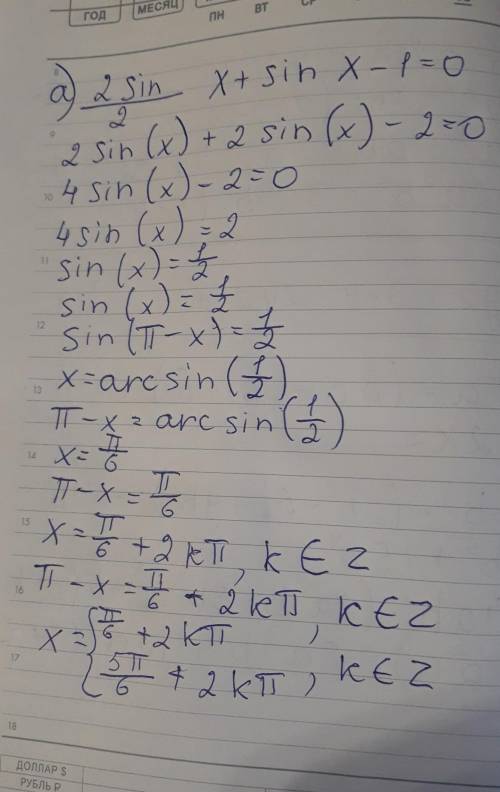 ГОД МЕСЯЦ ПН ВТ СР
а) 2 sin/2 x + sin x - 1 = 0
9
2 sin (x) + 2 sin (x) - 2 = 0
10 4 sin (x) - 2 = 0
4 sin (x) = 2
11 sin (x) = 1/2
sin (x) = 1/2
12 sin (π - x) = 1/2
13 x = arcsin (1/2)
π - x = arcsin (1/2)
14 x = π/6
π - x = π/6
15 x = π/6 + 2kπ, k ∈ z
16 π - x = π/6 + 2kπ, k ∈ z
x = { π/6 + 2kπ
17 5π/6 + 2kπ, k ∈ z
18
ДОЛЛАР $
РУБЛЬ Р